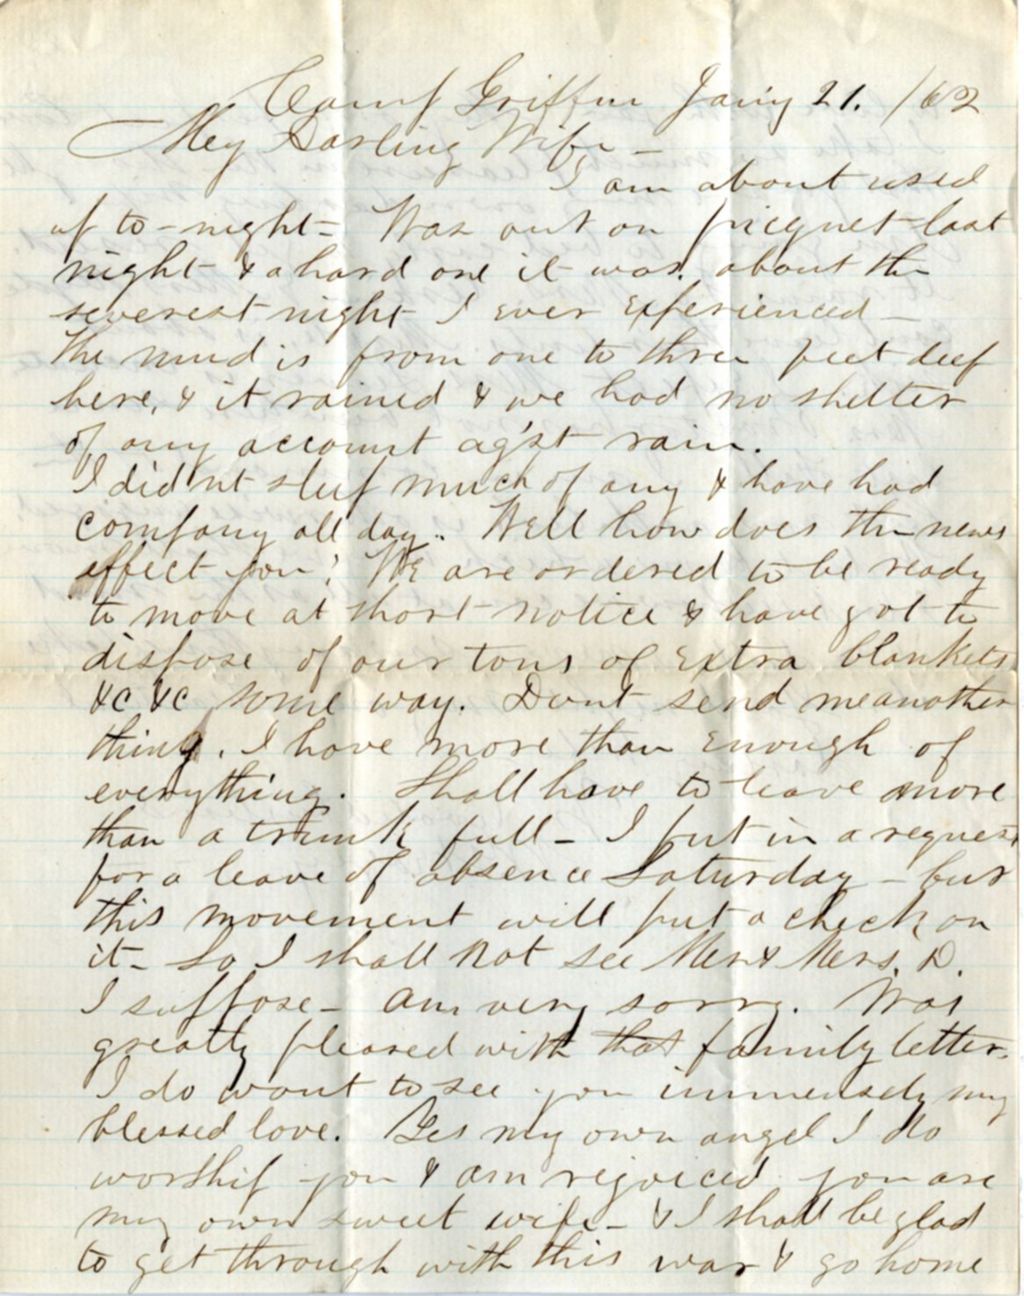 Camp Griffin Jan'y 21. /62
My Darling Wife -
I am about used
up to-night - Was out on picquet last
night & a hard one it was. about the
severest night I ever experienced -
The mud is from one to three feet deep
here, & it rained & we had no shelter
of any account ag'st rain.
I didn't sleep much of any & have had
company all day. Well how does the news
effect you? We are ordered to be ready
to move at short notice & have got to
dispose of our tons of extra blankets
&c &c some way. Dont send me another
thing. I have more than enough of
everything. Shall have to leave more
than a trunk full - I put in a request
for a leave of absence Saturday - but
this movement will put a check on
it - So I shall not see Mr & Mrs. D.
I suppose - Am very sorry. Was
greatly pleased with that family letter.
I do want to see you immensely my
blessed love. Yes my own angel I do
worship you & am rejoiced you are
my own sweet wife - & I shall be glad
to get through with this war & go home